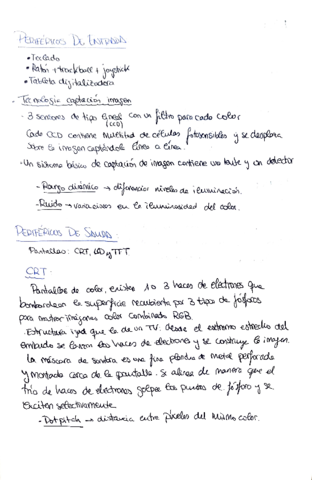 PERIFÉRICOS DE ENTRADA
• Teclado
• Ratón + trackball + joystick
• Tableta digitalizadora
- Tecnología captación imagen
• 3 sensores de tipo lineal con un filtro para cada color
(CCD)
Cada CCD contiene multitud de células fotosensibles y se desplaza
sobre la imagen captándola línea a línea.
• Un sistema básico de captación de imagen contiene una fuente y un detector
- Rango dinámico → diferenciar niveles de iluminación.
- Ruido → variaciones en la iluminosidad del color.
PERIFÉRICOS DE SALIDA
Pantallas: CRT, LCD y TFT
CRT:
Pantallas de color, existen 1 o 3 haces de electrones que
bombardean la superficie recubierta por 3 tipos de fósforos
para mostrar imágenes color combinando RGB.
Estructura igual que la de un TV. desde el extremo estrecho del
embudo se lanzan los haces de electrones y se construye la imagen.
La máscara de sombra es una fina plancha de metal perforada
y montada cerca de la pantalla. Se alinea de manera que el
trío de haces de electrones golpea los puntos de fósforo y se
exciten selectivamente
- Dot pitch → distancia entre píxeles del mismo color.